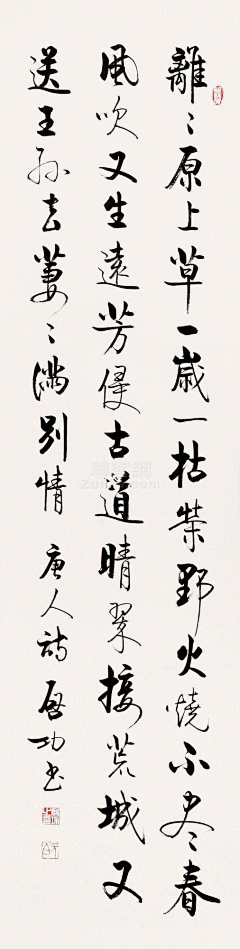 離〻原上草一歲一枯榮野火燒不盡春
風吹又生遠芳侵古道晴翠接荒城又
送王孫去萋〻滿別情 唐人詩 啓功書